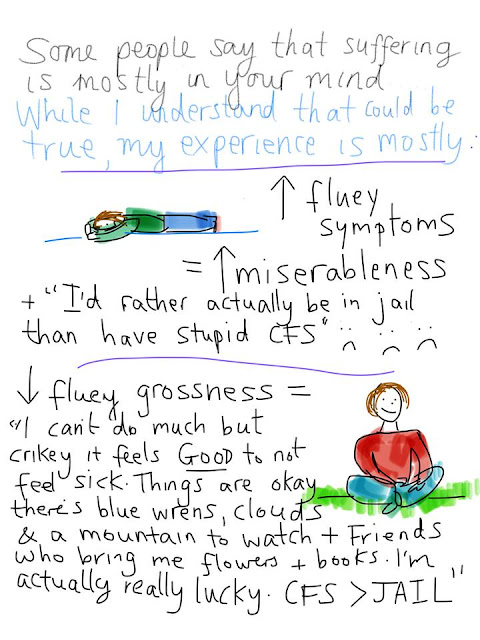 Some people say that suffering
is mostly in your mind
While I understand that could be
true, my experience is mostly:
↑ fluey
symptoms
= ↑ miserableness
+ "I'd rather actually be in jail
than have stupid CFS" :( :( :(
↓ fluey grossness =
"I can't do much but
crikey it feels GOOD to not
feel sick. Things are okay
there's blue wrens, clouds
& a mountain to watch + Friends
who bring me flowers + books. I'm
actually really lucky. CFS > JAIL"